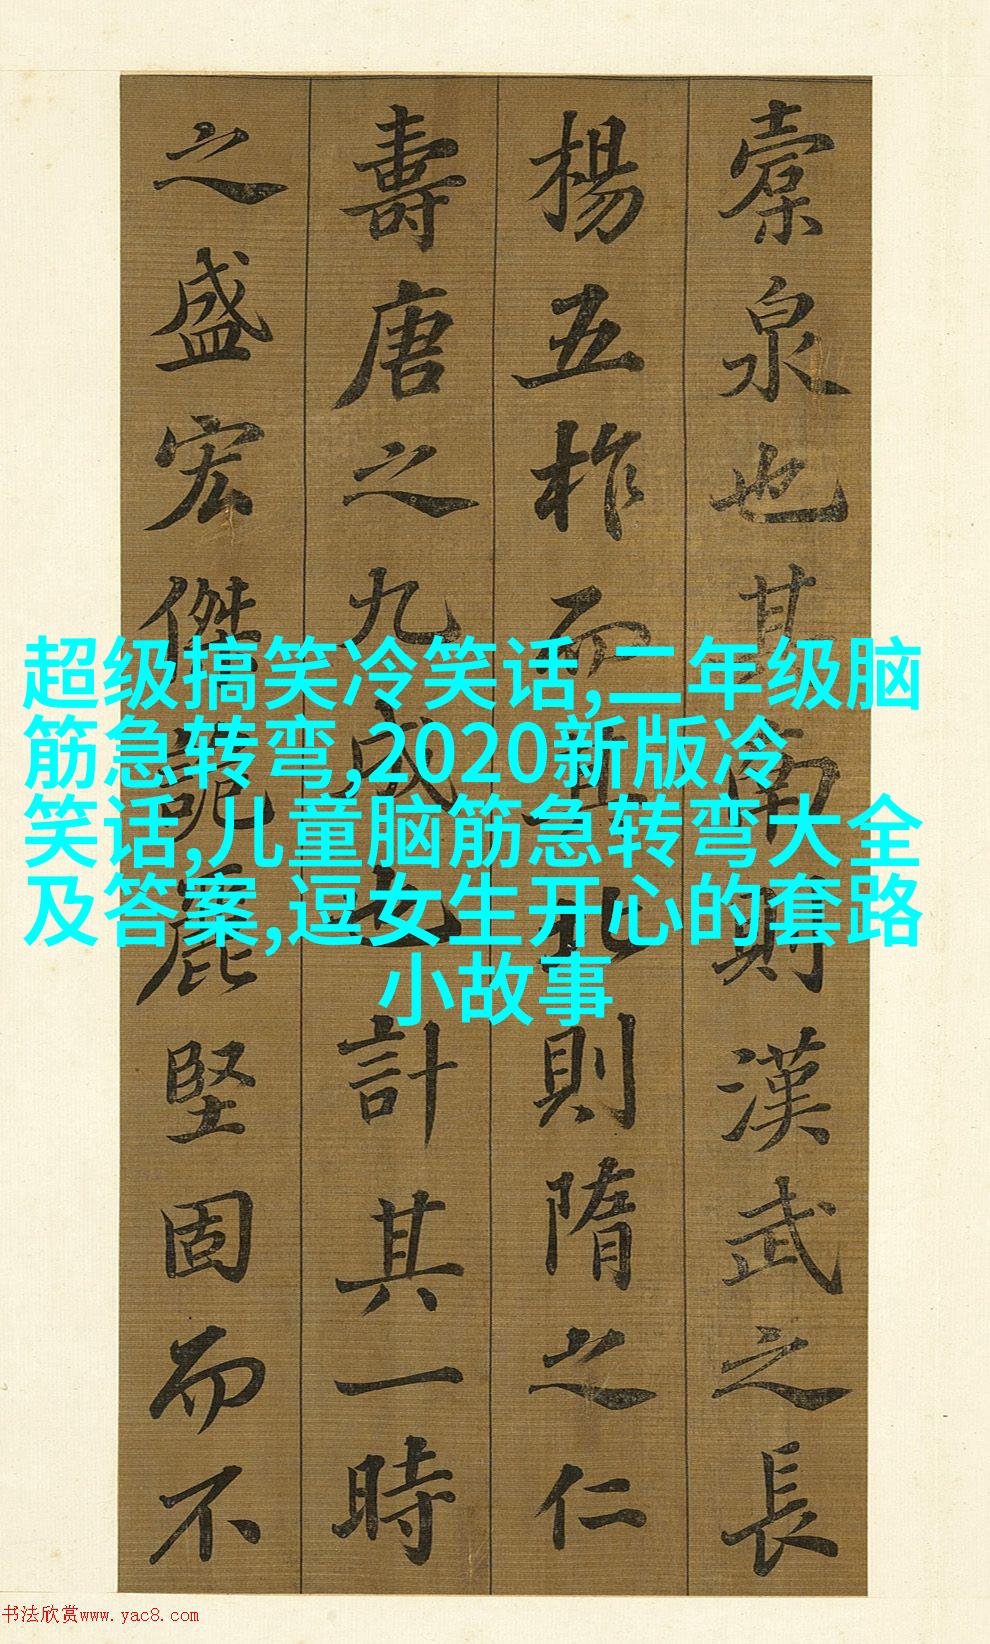 橐泉也其南則漢武之長
楊五柞而其北則隋之仁
壽唐之九成也計其一時
之盛宏傑詭麗堅固而不
超级搞笑冷笑话,二年级脑
筋急转弯,2020新版冷
笑话,儿童脑筋急转弯大全
及答案,逗女生开心的套路
小故事
书法欣赏www.yac8.com